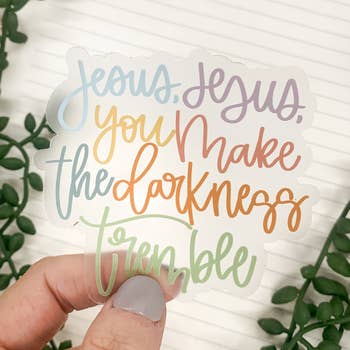 Jesus, Jesus,
you make
the darkness
tremble